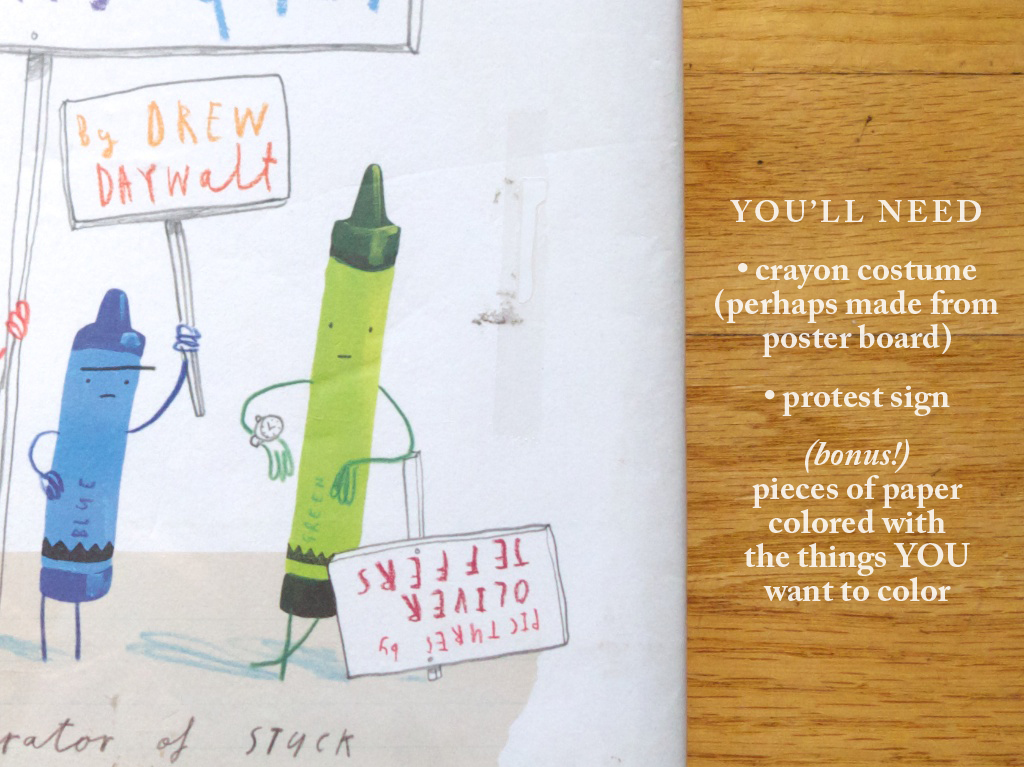 By DREW
DAYWalt
BLUE
GREEN
PICTURES by
OLIVER
JEFFERS
rator of STUCK
YOU'LL NEED
• crayon costume
(perhaps made from
poster board)
• protest sign
(bonus!)
pieces of paper
colored with
the things YOU
want to color